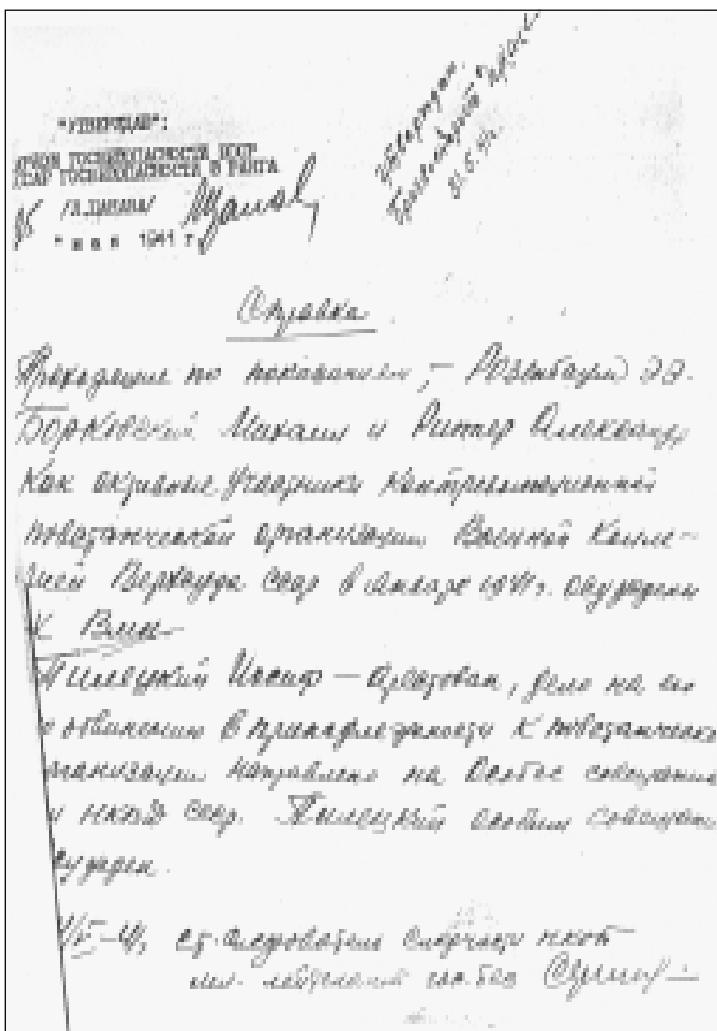 "УТВЕРЖДАЮ":
ГОСБЕЗОПАСНОСТИ
ГОСБЕЗОПАСНОСТИ 3 РАНГА
мая 1941 г.
Справка
Проходящие по показаниям – Розенбаум
Борковский Михаил и Риттер Александр
как активные участники контрреволюционной
повстанческой организации Военной Колле-
гией Верхсуда СССР в январе 1941 г. осуждены
к Вмн
Пилецкий Иосиф – арестован, дело на его
по обвинению в принадлежности к повстанческо
организации направлено на Особое совещание
НКВД СССР. Пилецкий особым совещан
осужден.
ст. следователь следчасти
мл. лейтенант гос. без